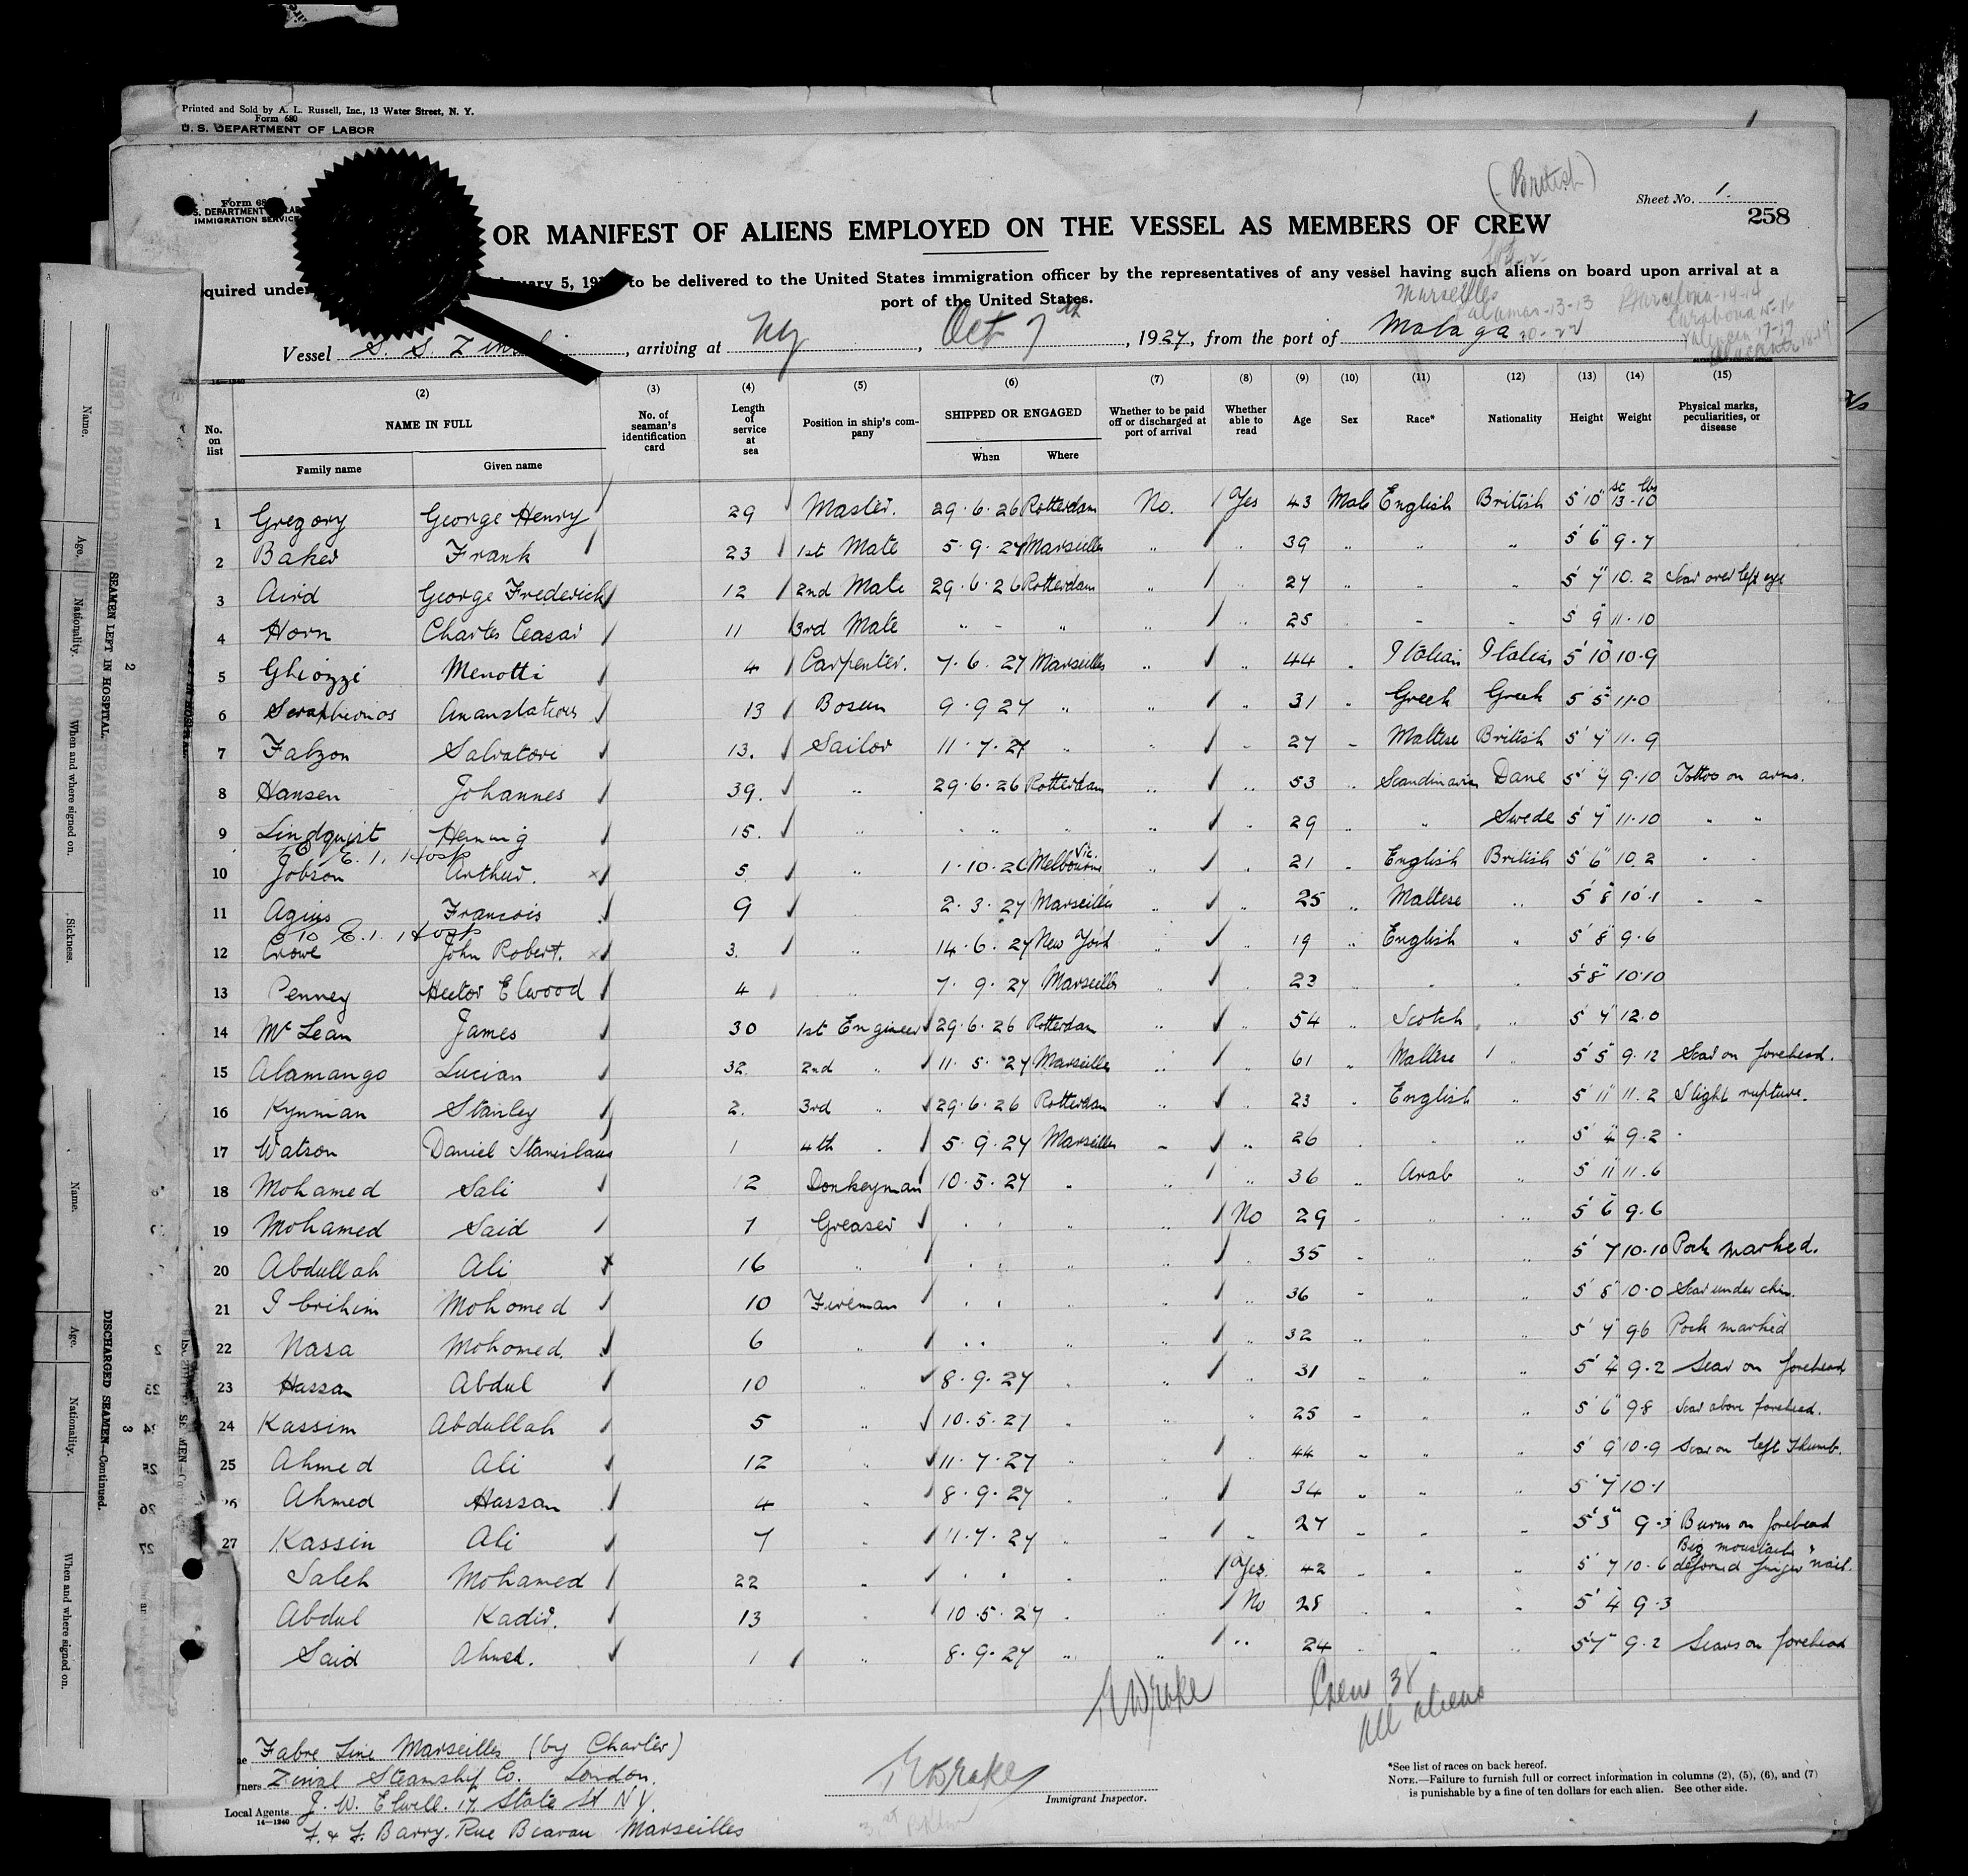 Printed and Sold by A. L. Russell, Inc., 13 Water Street, N. Y.
Form 680
U. S. DEPARTMENT OF LABOR
(British)
Sheet No. 1.
258
Form 68
S. DEPARTMENT LAB
IMMIGRATION SERVICE
OR MANIFEST OF ALIENS EMPLOYED ON THE VESSEL AS MEMBERS OF CREW
quired under uary 5, 19 to be delivered to the United States immigration officer by the representatives of any vessel having such aliens on board upon arrival at a
port of the United States.
Marseilles
Palamas-13-13 Barcelona-14-14
Vessel S. S. Zin , arriving at NY , Oct 7th , 1927, from the port of Malaga 20-22
Valencia 17-17
Alicante 18-19
14—1240
(2) (3) (4) (5) (6) (7) (8) (9) (10) (11) (12) (13) (14) (15)
No. on list NAME IN FULL No. of seaman's identification card Length of service at sea Position in ship's company SHIPPED OR ENGAGED Whether to be paid off or discharged at port of arrival Whether able to read Age Sex Race* Nationality Height Weight Physical marks, peculiarities, or disease
Family name Given name When Where
st lbs
1 Gregory George Henry 29 Master. 29·6·26 Rotterdam No. Yes 43 Male English British 5'10" 13-10
2 Baker Frank 23 1st Mate 5·9·27 Marseilles " " 39 " " " 5'6" 9·7
3 Aird George Frederick 12 2nd Mate 29·6·26 Rotterdam " " 27 " " " 5'7" 10.2 Scar over left eye
4 Horn Charles Ceasar 11 3rd Mate " " " " " 25 " " 5'9" 11·10
5 Ghiozzi Menotti 4 Carpenter. 7·6·27 Marseilles " " 44 " Italian Italian 5'10" 10·9
6 Seraphionos Ananstatious 13 Bosun 9·9 27 " " " 31 " Greek Greek 5'5" 11·0
7 Falzon Salvatore 13. Sailor 11·7·27 " " " 27 " Maltese British 5'7" 11·9
8 Hansen Johannes 39. " 29·6·26 Rotterdam " " 53 " Scandinavian Dane 5'7" 9·10 Tattoo on arms.
9 Lindquist Henning 15. " " " " " 29 " " Swede 5'7" 11·10 " "
E. I. Hosp
10 Jobson Arthur. 5 " 1·10·26 Melbourne Vic. " " 21 " English British 5'6" 10.2 " "
11 Agius Francois 9 " 2·3·27 Marseilles " " 25 " Maltese " 5'8" 10·1 " "
to E. I. Hosp
12 Crowe John Robert. 3. " 14·6·27 New York " " 19 " English " 5'8" 9·6
13 Penney Hector Elwood 4 " 7·9·27 Marseilles " " 23 " " " 5'8" 10·10
14 McLean James 30 1st Engineer 29·6·26 Rotterdam " " 54 " Scotch " 5'7" 12.0
15 Alamango Lucian 32. 2nd " 11·5·27 Marseilles " " 61 " Maltese " 5'5" 9·12 Scar on forehead.
16 Kynman Stanley 2. 3rd " 29·6·26 Rotterdam " " 23 " English 5'11" 11.2 Slight rupture.
17 Watson Daniel Stanislaus 1 4th " 5·9·27 Marseilles " " 26 " " " 5'4" 9·2
18 Mohamed Sali 12 Donkeyman 10·5·27 " " " 36 " Arab " 5'11" 11.6
19 Mohamed Said 7 Greaser " " " No 29 " " " 5'6" 9.6
20 Abdullah Ali 16 " " " " " 35 " " " 5'7 10·10 Pock marked.
21 Ibrihim Mohomed 10 Fireman " " " " 36 " " " 5'8" 10·0 Scar under chin.
22 Nasa Mohomed. 6 " " " " " 32 " " " 5'7" 9·6 Pock marked
23 Hassan Abdul 10 " 8·9·27 " " " 31 " " " 5'4" 9·2 Scar on forehead
24 Kassim Abdullah 5 " 10·5·27 " " " 25 " " " 5'6" 9·8 Scar above forehead.
25 Ahmed Ali 12 " 11·7·27 " " 44 " " " 5'9" 10·9 Scar on left thumb.
26 Ahmed Hassan 4 " 8·9·27 " " 34 " " " 5'7" 10·1
27 Kassim Ali 7 " 11·7·27 " " 27 " " " 5'5" 9·3 Burns on forehead
Saleh Mohamed 22 " " " " Yes. 42 " " " 5'7 10·6 Big moustache & deformed finger nail.
Abdul Kadir. 13 " 10·5·27 " " No 28 " " " 5'4" 9·3
Said Ahmed. 1 " 8·9·27 " " " 24 " " " 5'7" 9·2 Scars on forehead
Crew 38
All aliens
Fabre Line Marseilles (by Charter)
wners Zinal Steamship Co. London.
Local Agents J. W. Elwell. 17, State St N Y.
14—1240
F. & J. Barry. Rue Beavau Marseilles
Immigrant Inspector.
*See list of races on back hereof.
NOTE.—Failure to furnish full or correct information in columns (2), (5), (6), and (7)
is punishable by a fine of ten dollars for each alien. See other side.
SEAMEN LEFT IN HOSPITAL.
2
Name. Age. Nationality. When and where signed on. Sickness.
DISCHARGED SEAMEN—Continued.
3
Name. Age. Nationality. When and where signed on.